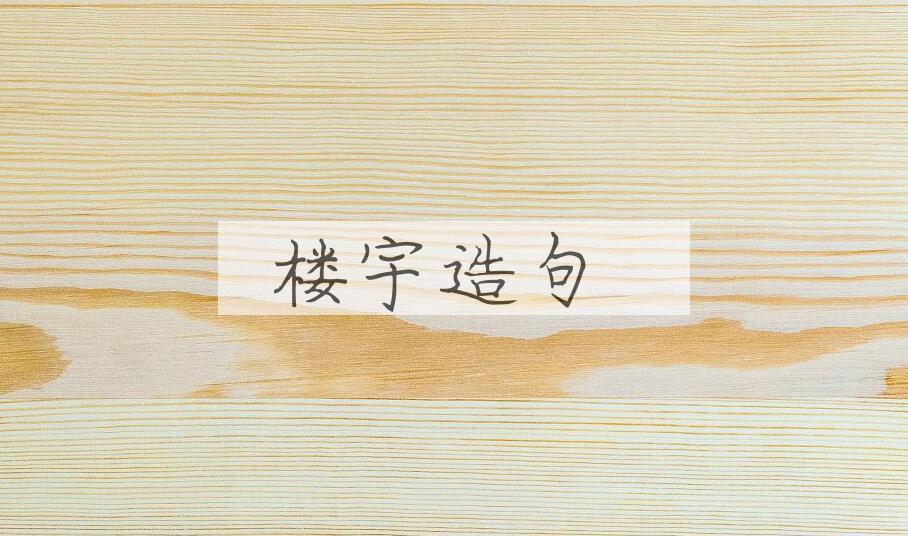 楼宇造句